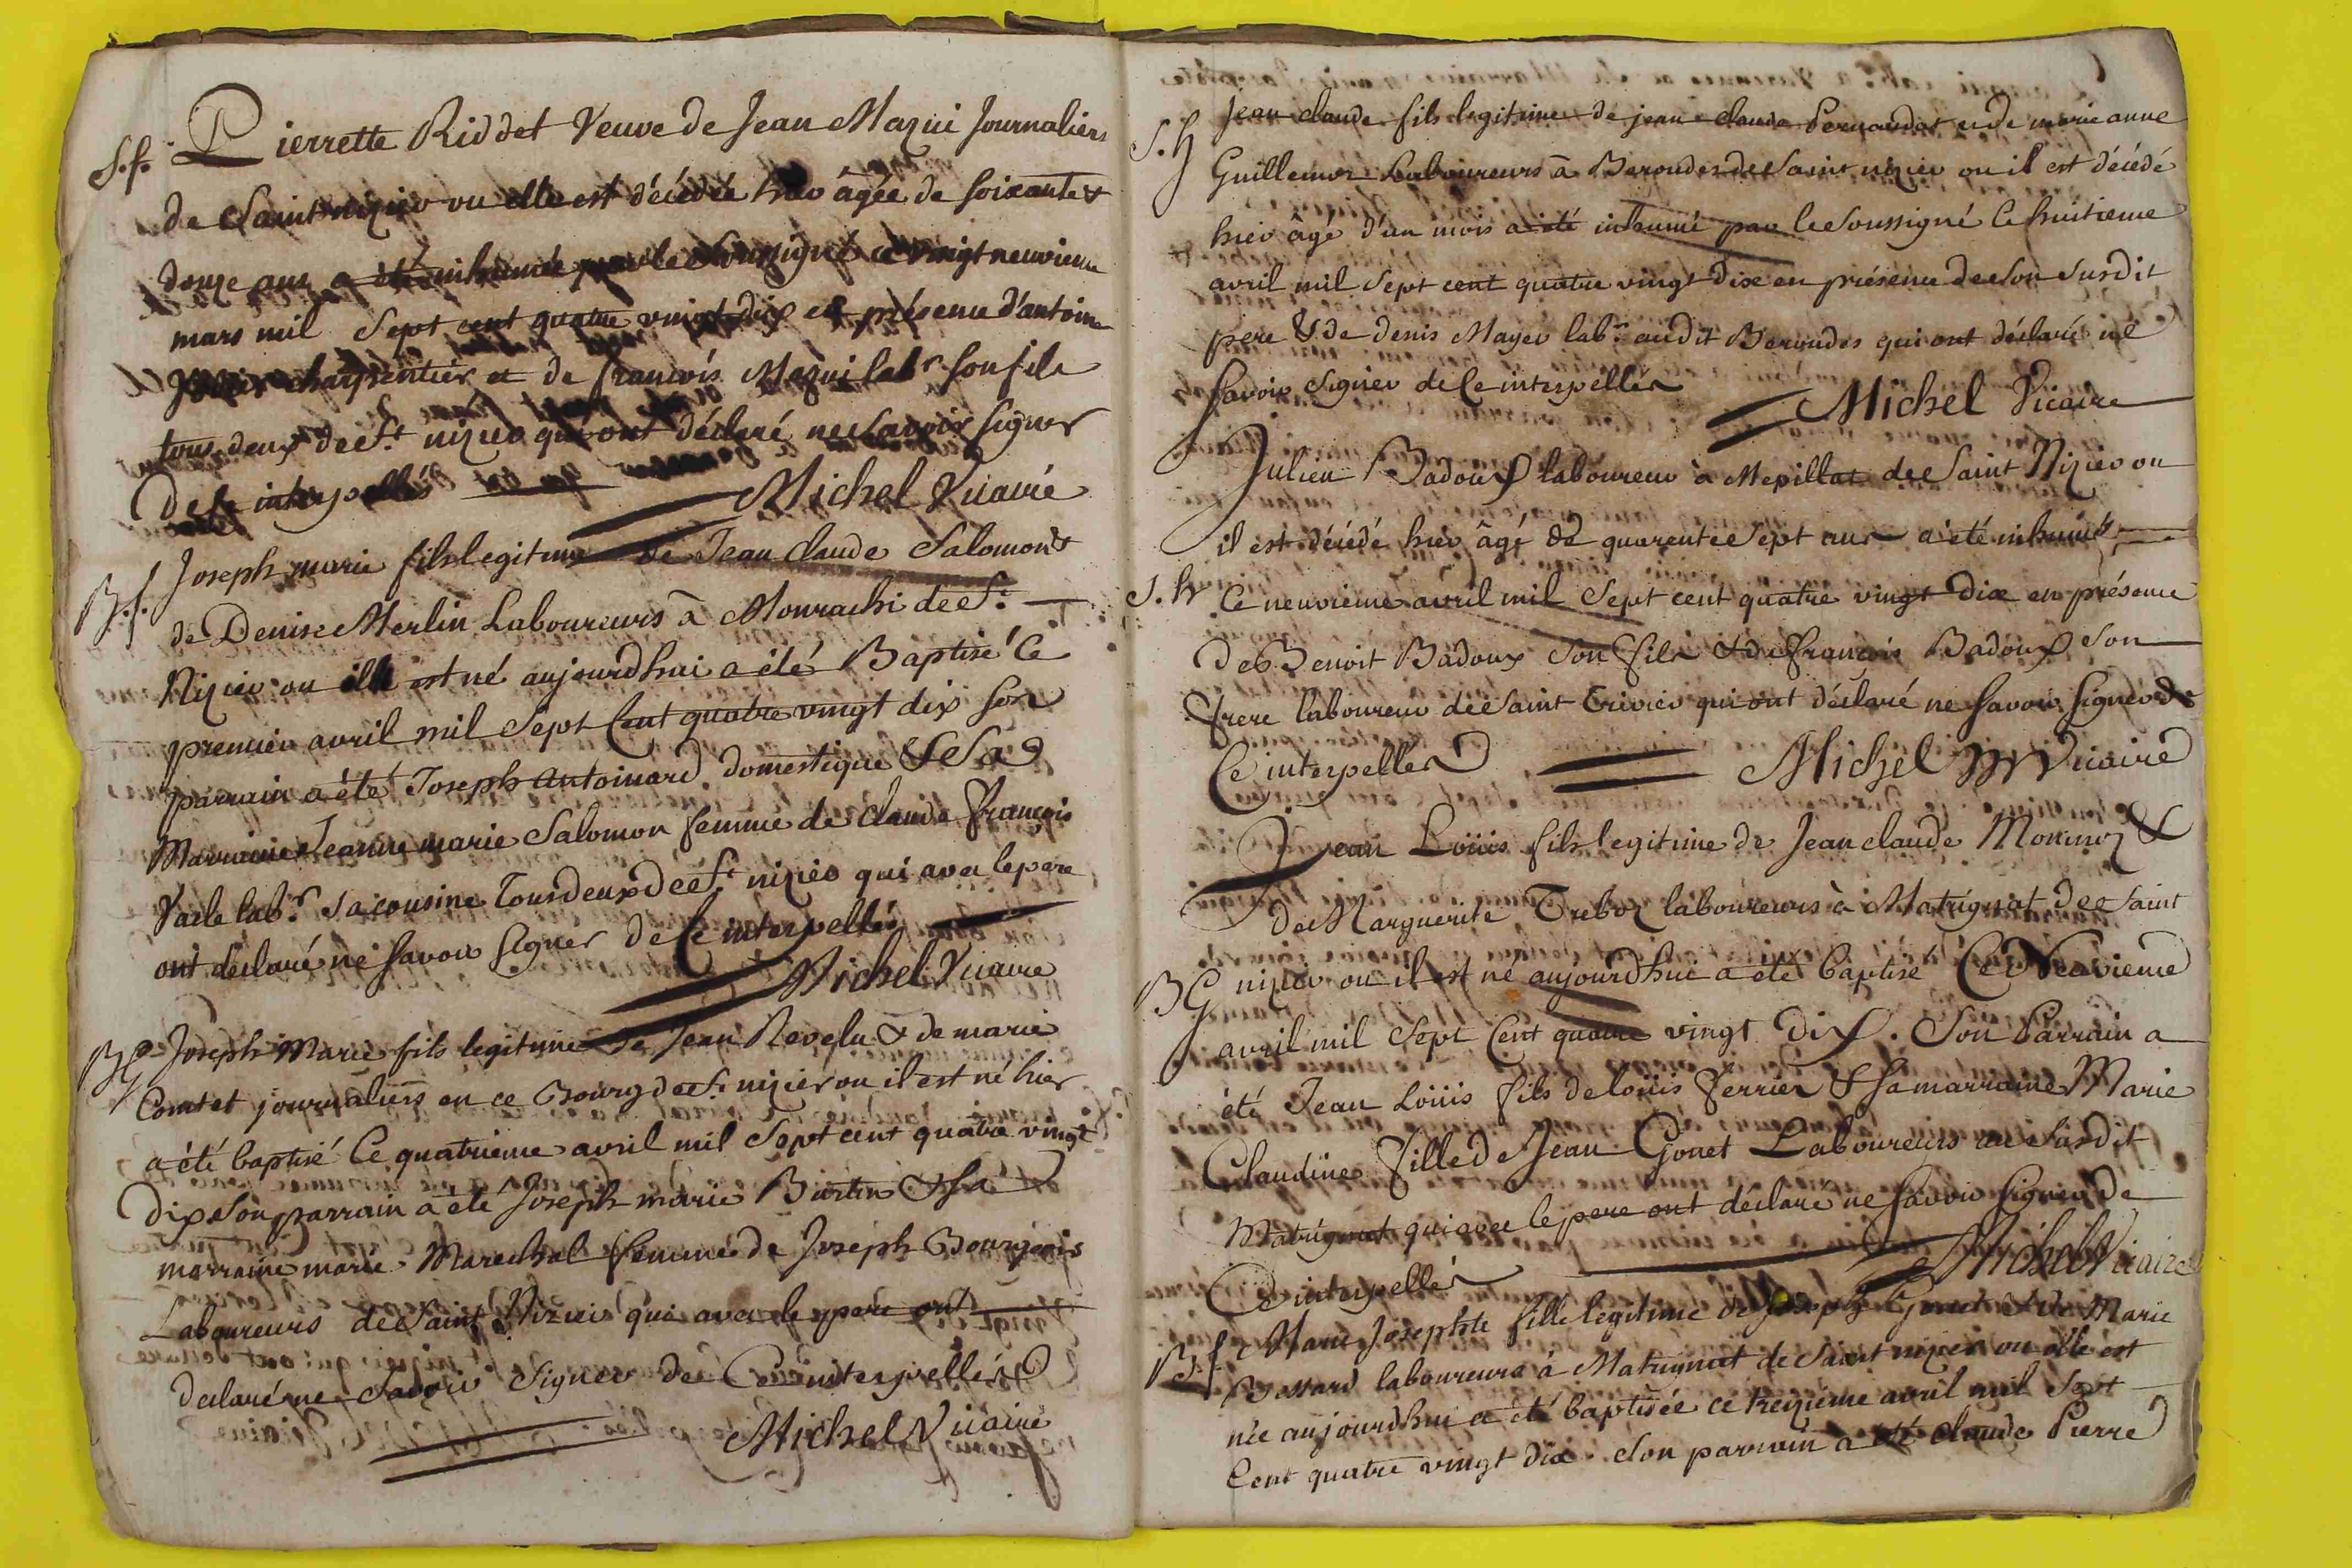 S.f. Pierrette Riddet Veuve de Jean Mazui Journaliers
de Saint nizier ou elle est décédée hier âgée de soixante &
douze ans a été inhumée par le soussigné ce vingt neuvieme
mars mil Sept cent quatre vingt dix en présence d'antoine
charpentier et de francois Mazui labr son fils
tous deux de St nizier qui ont déclaré ne savoir signer
de ce interpellés
Michel Vicaire
B.f. Joseph marie fils legitime de Jean Claude Salomon &
de Denise Merlin Laboureurs à Monrachi de St
Nizier ou il est né aujourdhui a été Baptisé Ce
premier avril mil Sept Cent quatre vingt dix son
parrain a été Joseph Antoinard domestique & Sa
Marraine Jeanne marie Salomon femme de claude François
labr sa cousine Tous deux de St nizier qui avec le pere
ont déclaré ne savoir signer de Ce interpellés
Michel Vicaire
BG Joseph Marie fils legitime de Jean Revelu & de marie
Comtet journaliers en ce Bourg de St nizier ou il est né hier
a été baptisé Ce quatrieme avril mil Sept cent quatre vingt
Dix Son parrain a été Joseph marie Burtin & Sa
marraine marie Marechal femme de Joseph Bourgeois
Laboureurs de Saint Nizier qui avec le pere ont
declaré ne Savoir Signer de Ce interpellés
Michel Vicaire
S.h Jean claude fils legitime de jean claude Pernaudat et de marie anne
Guillemot Laboureurs à Beroudes de Saint nizier ou il est décédé
hier âgé d'un mois a été inhumé par le Soussigné Ce huitieme
avril mil Sept cent quatre vingt Dix en présence de Son Susdit
pere & de denis Mayer labr audit Beroudes qui ont déclaré ne
savoir signer de Ce interpellés
Michel Vicaire
Julien Badoux laboureur à Mepillat de Saint Nizier ou
il est décédé hier âgé de quarente Sept ans a été inhumé
S.h Ce neuvieme avril mil Sept cent quatre vingt Dix en présence
de Benoit Badoux Son fils & de François Badoux Son
frere laboureur de Saint Trivier qui ont déclaré ne savoir signer de
Ce interpellés
Michel Vicaire
Jean Loüis fils legitime de Jean claude Moninoz &
de Marguerite Treboz laboureurs à Matrignat de Saint
BG nizier ou il est né aujourdhui a été baptisé Ce Neuvieme
avril mil Sept Cent quatre vingt Dix. Son Parrain a
été Jean Loüis fils de loüis Ferrier & Sa marraine Marie
Claudine Fille de Jean Gonet Laboureurs au Susdit
Matrignat qui avec le pere ont déclaré ne Savoir Signer de
Ce interpellés
Michel Vicaire
B.f Marie Josephte fille legitime de Joseph Gonet & de Marie
Bossard laboureurs à Matrignat de Saint nizier ou elle est
née aujourdhui a été baptisée ce treizieme avril mil Sept
Cent quatre vingt dix. Son parrain a été claude Pierre